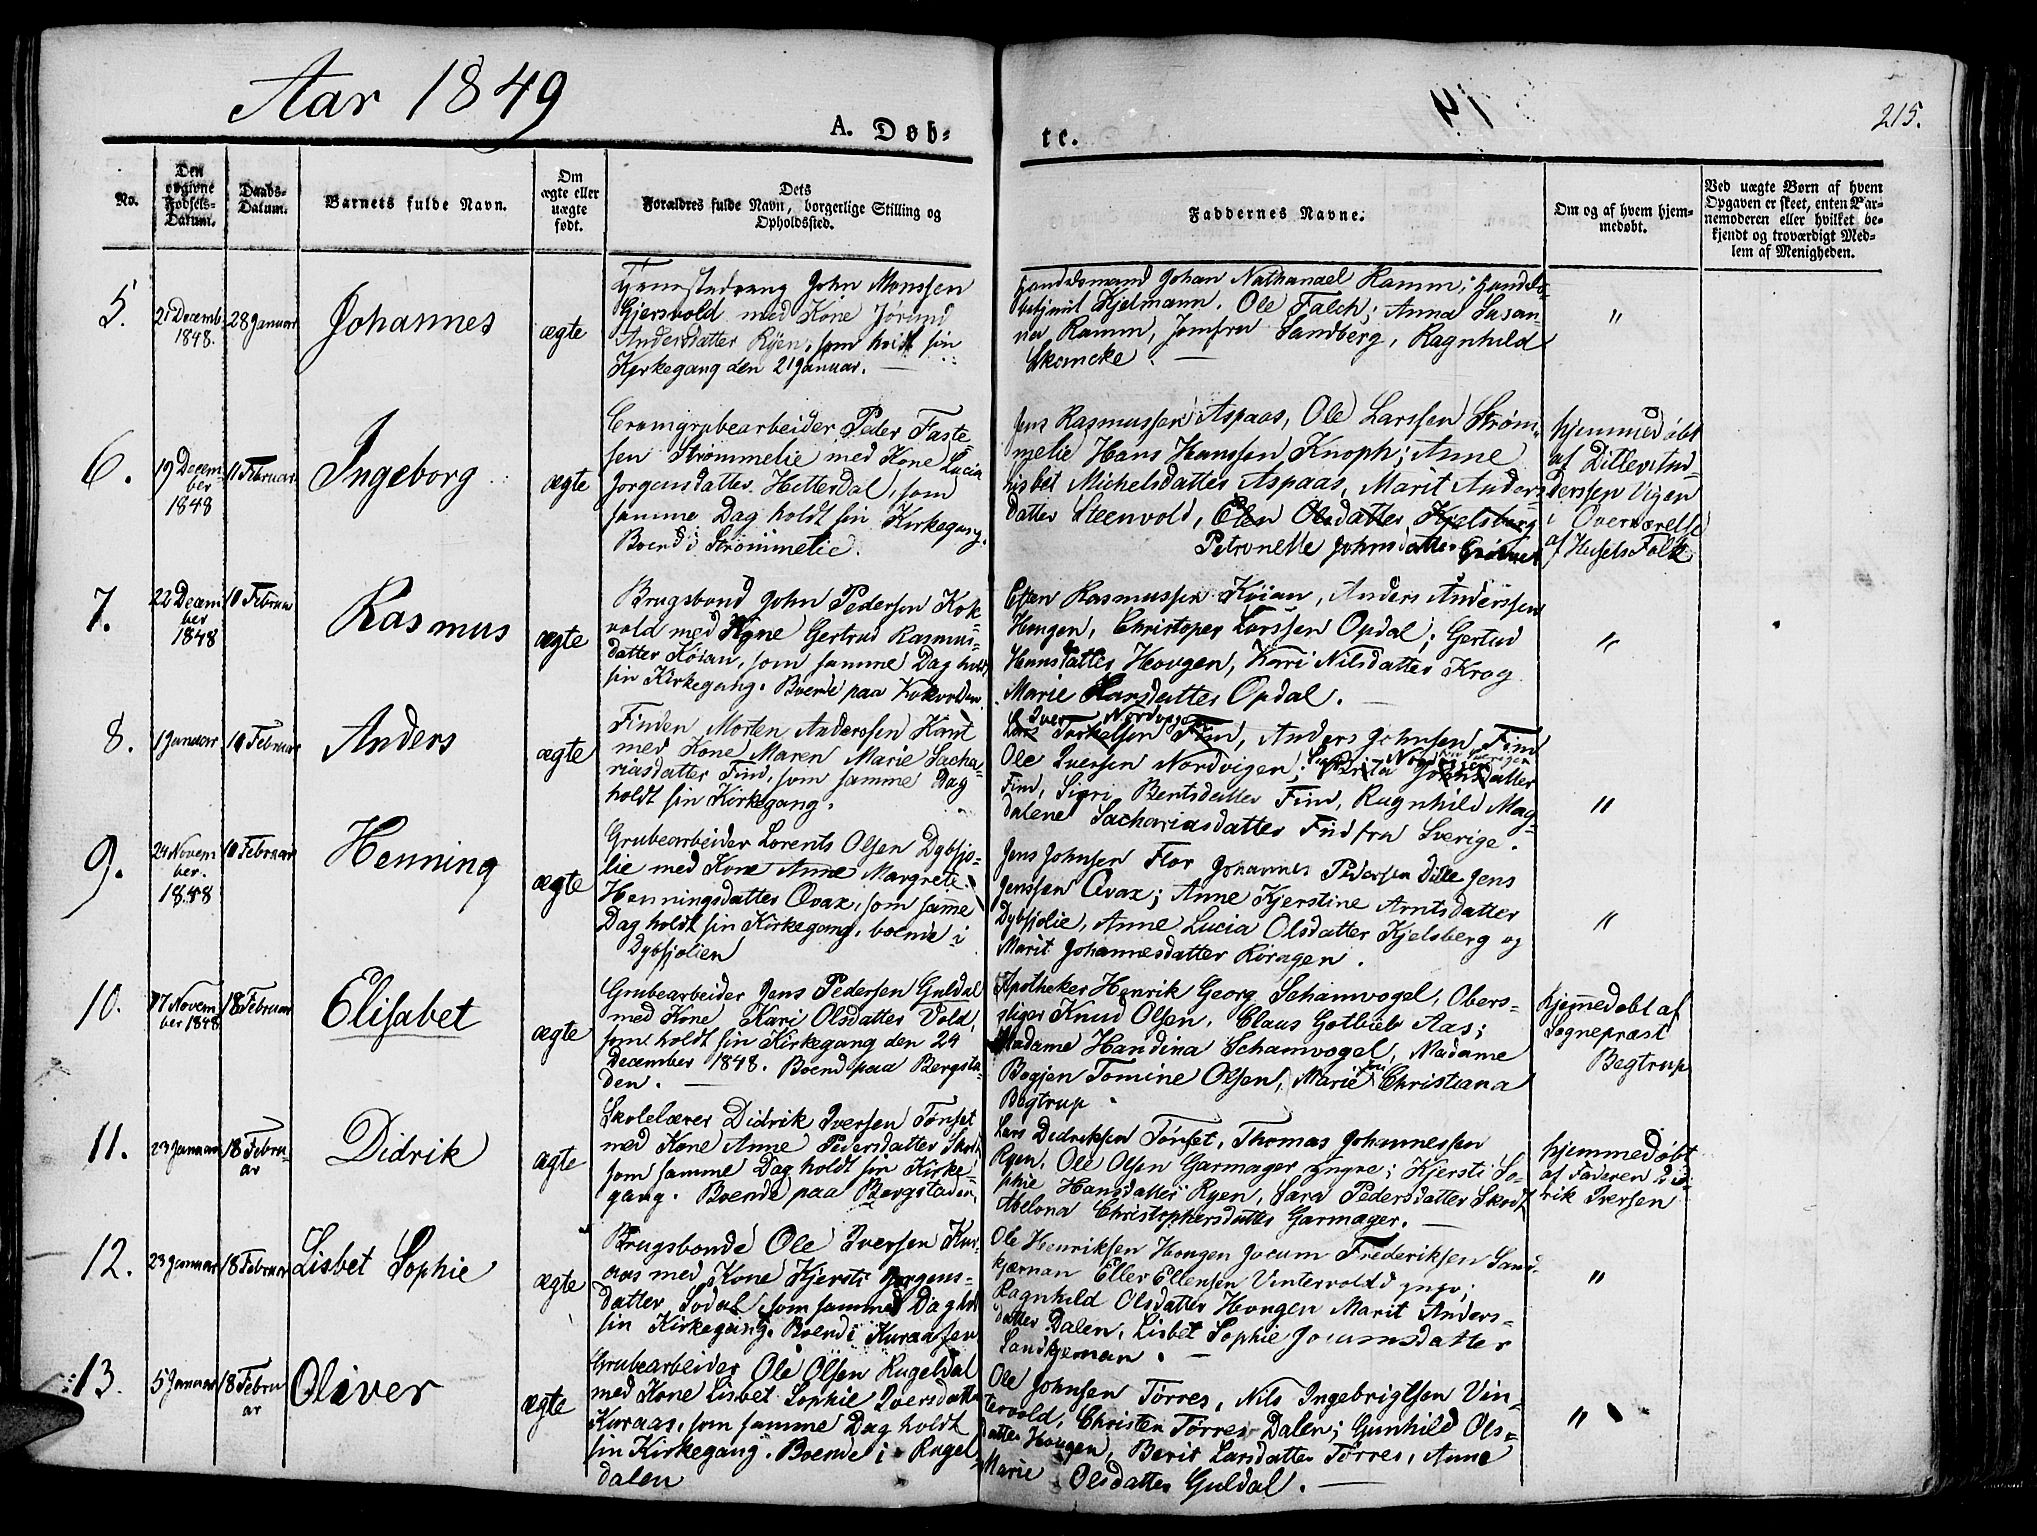 Aar 1849
A. Døb-
te.
215.
No.
Den
opgivne
Fødsels-
Datum.
Daabs-
Datum.
Barnets fulde Navn.
Om
ægte eller
uægte
født.
Dets
Forældres fulde Navn, borgerlige Stilling og
Opholdssted.
Faddernes Navne.
Om og af hvem hjem-
medøbt.
Ved uægte Børn af hvem
Opgaven er skeet, enten Bar-
nemoderen eller hvilket be-
kjendt og troværdigt Med-
lem af Menigheden.
5.
21 Decemb.
1848.
28 Januar
Johannes
ægte
John Monssen
Gjersvold med Kone Jørund
Andersdatter Ryen, som holdt sin
Kirkegang den 21 Januar.
Handelsmand Johan Nathanael Ramm; Handels-
betjent Kjelmann. Ole Falch; Anna Susan-
na Ramm, Jomfru Sandberg, Ragnhild
Skancke.
"
6.
19 Decem-
ber
1848
11 Februar
Ingeborg
ægte
Cromgrubearbeider Peder Faste-
sen Strømmelie med Kone Lucia
Jorgensdatter Hitterdal, som
samme Dag holdt sin Kirkegang.
Boend i Strømmelie.
Jens Rasmussen Aspaas, Ole Larssen Strøm-
melie Hans Hanssen Knoph; Anne
Lisbet Michelsdatter Aspaas, Marit Anders-
datter Steenvold, Elen Olsdatter Kjelsberg
Petronelle Johnsdatter
hjemmedøbt
af Ditlev And-
derssen Vigen
i Overværelse
af Husets Folk
7.
22 Decem-
ber
1848
10 Februar
Rasmus
ægte
Brugsbond John Pedersen Kok-
vold med Kone Gertrud Rasmus-
datter Køian, som samme Dag holdt
sin Kirkegang. Boende paa Kokvolden
Esten Rasmussen Køian, Anders Anderssen
Hougen, Christoper Larssen Opdal; Gertud
Hansdatter Hougen, Kari Nilsdatter Krog
Marie Larsdatter Opdal.
"
8.
1 Januar
10 Februar
Anders
ægte
Finden Morten Anderssen Kant
med Kone Maren Marie Sacha-
riasdatter Find, som samme Dag
holdt sin Kirkegang.
Iver Nordvigen
Lars Torkelsen Find, Anders Johnsen Find
Ole Iversen Nordvigen; Johnsdatter
Find, Siri Bentsdatter Find, Ragnhild Mag-
dalene Sachariasdatter Find fra Sverige.
"
9.
24 Novem
ber.
1848
10 Februar
Henning
ægte
Grubearbeider Lorents Olsen Dybsjo-
lie med Kone Anne Margrete
Henningsdatter Qvax, som samme
Dag holdt sin Kirkegang, boende i
Dybsjolien
Jens Johnsen Flor Johannes Pedersen Dille Jens
Jenssen Qvax; Anne Kjerstine Arntsdatter
Dybsjolie, Anne Lucia Olsdatter Kjelsberg og
Marit Johannesdatter Røragen.
"
10.
17 Novem
ber 1848
18 Februar
Elisabet
ægte
Grubearbeider Jens Pedersen Guldal
med Kone Kari Olsdatter Vold,
som holdt sin Kirkegang den 24
December 1848. Boend paa Bergsta-
den.
Apotheker Henrik Georg Schamvogel, Obers-
tiger Knud Olsen, Claus Gotlieb Aas;
Madame Handina Schamvogel, Madame
Bogjen Tomine Olsen, Marie Christiana
Begtrup.
Hjemmedøbt af
Sognepræst
Begtrup
11.
23 Januar
18 Febru-
ar
Didrik
ægte
Skolelærer Didrik Iversen Tønset
med Kone Anne Pedersdatter Skott
som samme Dag holdt sin Kirke-
gang. Boende paa Bergstaden.
Lars Didriksen Tønset, Thomas Johannessen
Ryen, Ole Olsen Garmager yngre; Kjersti So-
phie Hansdatter Ryen, Sara Pedersdatter Skodt
Abelona Christophersdatter Garmager.
hjemmedøbt
af Faderen Did-
rik Iversen
12.
23 Januar
18 Februar
Lisbet Sophie
ægte
Brugsbonde Ole Iversen Kur-
aas med Kone Kjersti Jørgens-
datter Sodal, som samme Dag holdt
sin Kirkegang. Boend i Kuraasen
Ole Henriksen Hougen Jocum Frederiksen Sand-
kjærnan Eller Ellensen Vintervold yngr;
Ragnhild Olsdatter Hougen Marit Anders-
datter Dalen, Lisbet Sophie Jocumsdatter
Sandkjernan.
"
13.
5 Januar
18 Febru
ar
Oliver
ægte
Grubearbeider Ole Olsen Rugeldal
med Kone Lisbet Sophie Iversdatter
Kuraas, som samme Dag holdt
sin Kirkegang. Boende i Rugel-
dalen
Ole Johnsen Tørres, Nils Ingebrigtsen Vin-
tervold, Christen Tørres Dalen; Gunhild Ols-
datter Hougen, Berit Larsdatter Tørres, Anne
Marie Olsdatter Guldal.
"